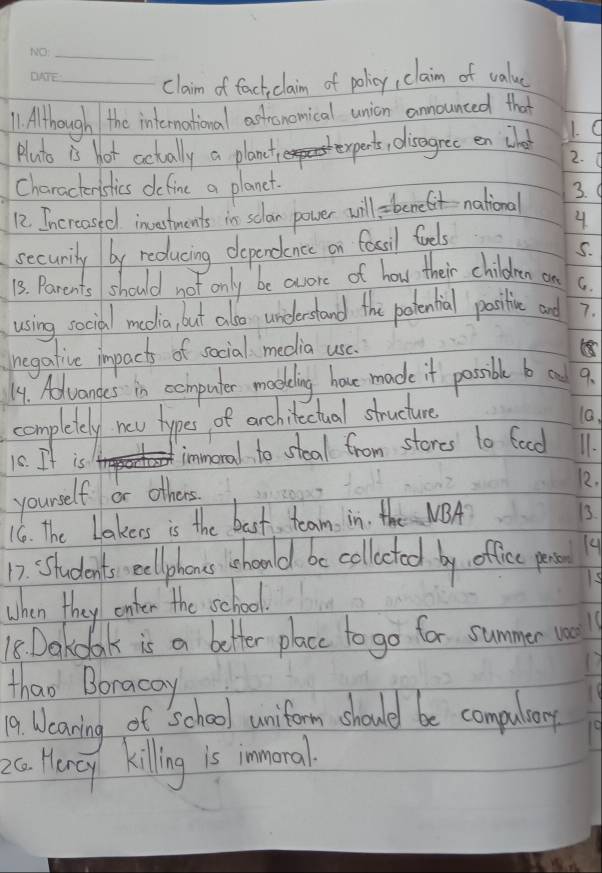 NO:
DATE:
Claim of fact, claim of policy, claim of value
11. Although the international astronomical union announced that
Pluto is not actually a planet, experts, disagree on what
Characteristics define a planet.
12. Increased investments in solar power will benefit national
security by reducing dependence on fossil fuels
13. Parents should not only be aware of how their children are
using social media, but also understand the potential positive and
negative impacts of social media use.
14. Advances in computer modeling have made it possible to
completely new types of architectual structure
15. It is immoral to steal from stores to feed
yourself or others.
16. The Lakers is the best team in the NBA
17. Students cellphones should be collected by office person
when they enter the school.
18. Dakdak is a better place to go for summer vaca
than Boracay
19. Wearing of school uniform should be compulsory
20. Mercy killing is immoral.
1.
2.
3.
4
5.
6.
7.
8
9.
10.
11.
12.
13.
14
15
16
17
18
19